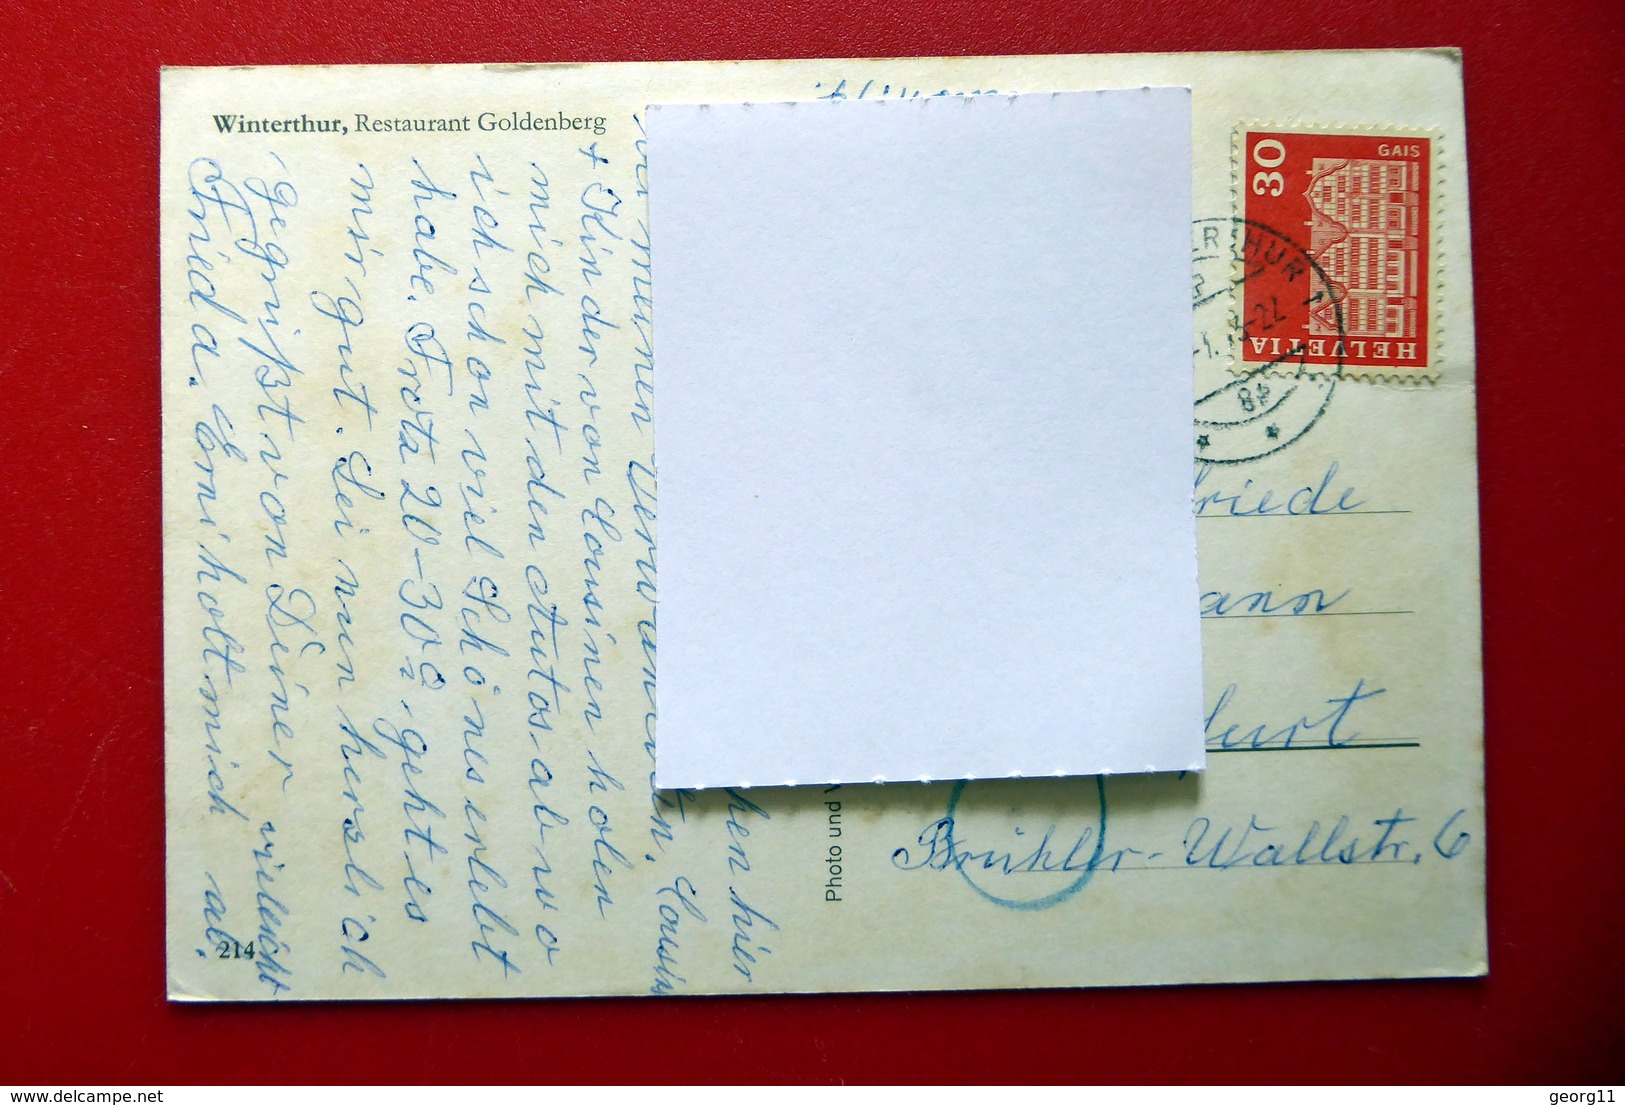 Winterthur, Restaurant Goldenberg
hen hier
meinen Verwandten. Cousin
+ Kinder von Cousinen holen
mich mit den Autos ab wo
ich schon viel Schönes erlebt
habe. Trotz 20–30° geht es
mir gut. Sei nun herzlich
gegrüßt von Deiner
Frieda. Erni holt mich ab.
214
Photo und V
30
GAIS
HELVETIA
riede
ann
furt
Brühler-Wallstr. 6
delcampe.net
georg11